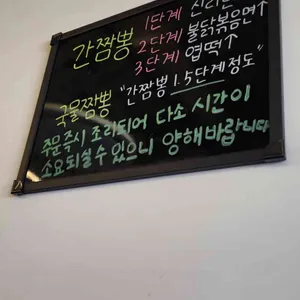 간짬뽕 1단계 신라면
2단계 불닭볶음면↑
3단계 엽떡↑
국물짬뽕 "간짬뽕 1.5단계정도"
주문즉시 조리되어 다소 시간이
소요되실수 있으니 양해바랍니다